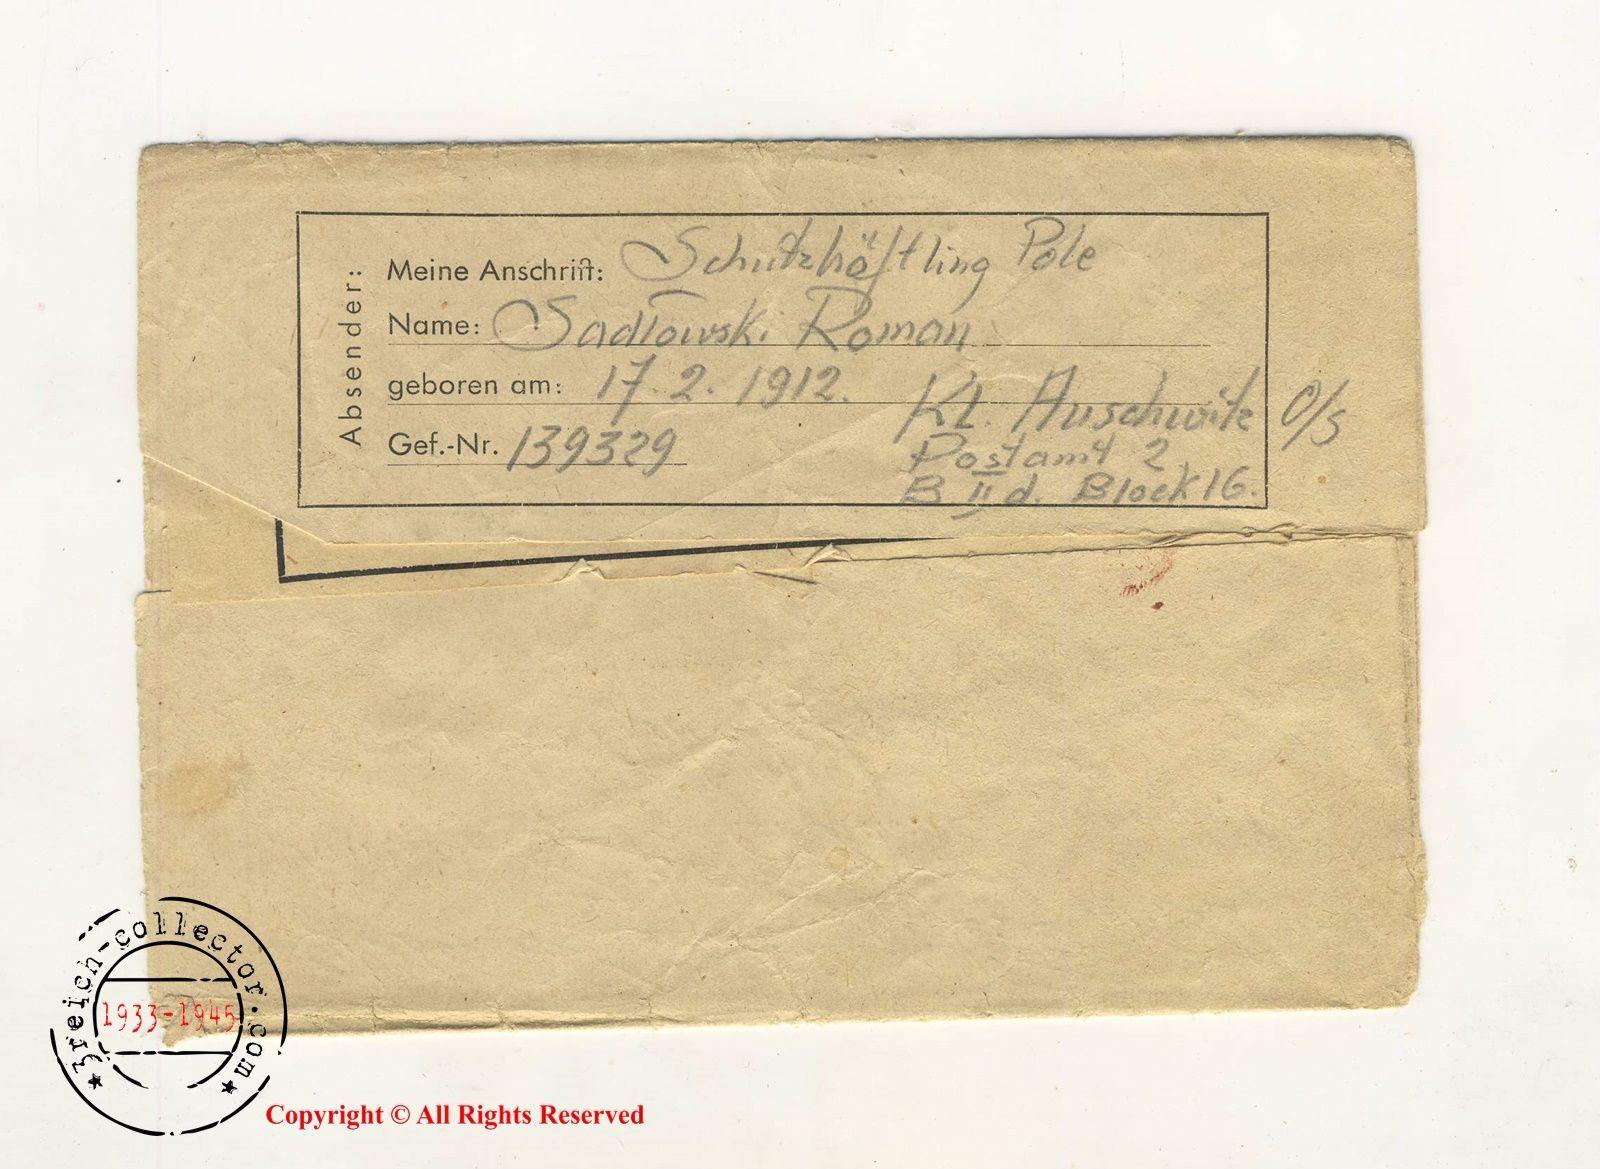 Absender:
Meine Anschrift: Schutzhäftling Pole
Name: Sadłowski Roman
geboren am: 17. 2. 1912.
KL. Auschwitz O/S
Gef.-Nr. 139329
Postamt 2
B. II d. Block 16.
3reich-collector.com
1933-1945
Copyright © All Rights Reserved